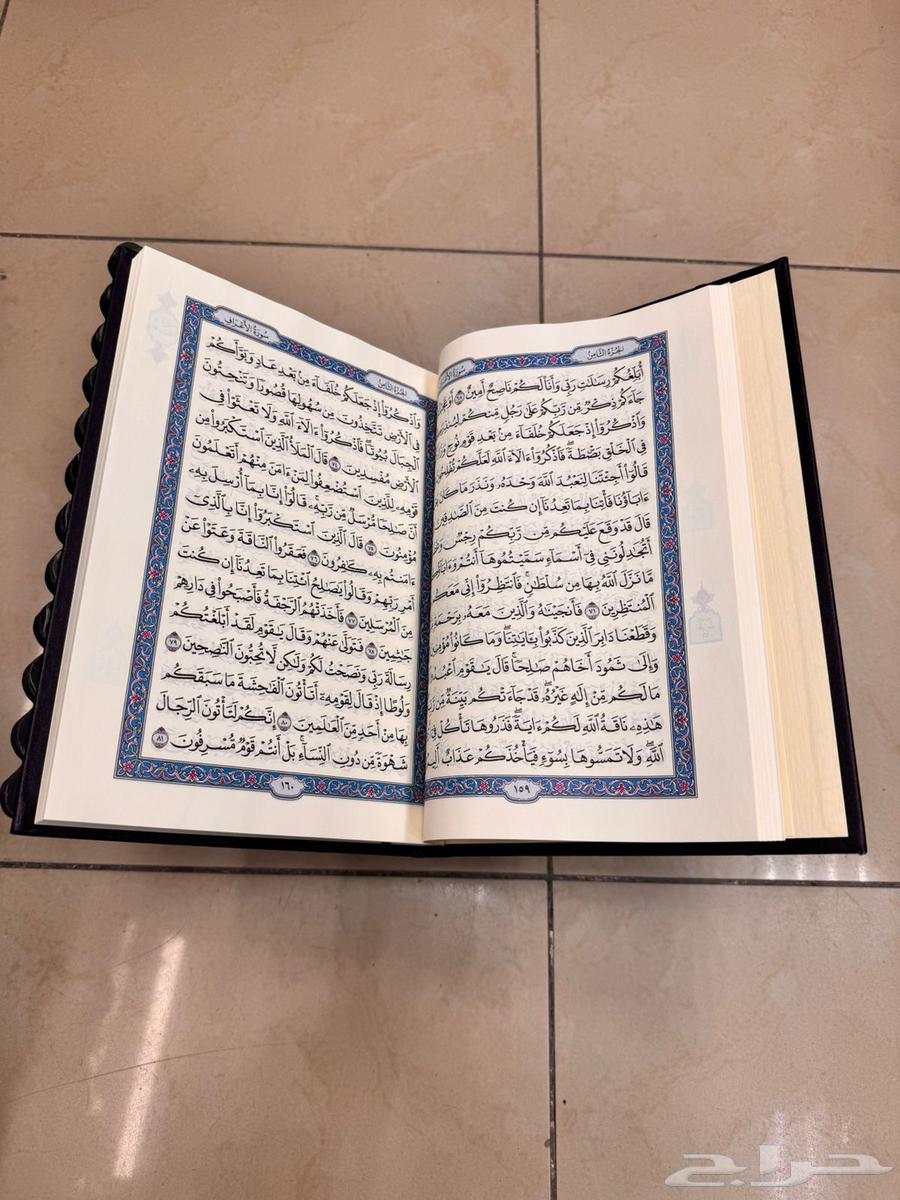 الجُزْءُ الثَّامِنُ
سُورَةُ
أُبَلِّغُكُمْ رِسَٰلَٰتِ رَبِّي وَأَنَا۠ لَكُمْ نَاصِحٌ أَمِينٌ ٦٨
جَآءَكُمْ ذِكْرٌ مِّن رَّبِّكُمْ عَلَىٰ رَجُلٍ مِّنكُمْ
وَٱذْكُرُوٓا۟ إِذْ جَعَلَكُمْ خُلَفَآءَ مِنۢ بَعْدِ قَوْمِ نُوحٍ
فِي ٱلْخَلْقِ بَصْۜطَةً ۖ فَٱذْكُرُوٓا۟ ءَالَآءَ ٱللَّهِ لَعَلَّكُمْ
قَالُوٓا۟ أَجِئْتَنَا لِنَعْبُدَ ٱللَّهَ وَحْدَهُۥ وَنَذَرَ مَا
ءَابَآؤُنَا فَأْتِنَا بِمَا تَعِدُنَآ إِن كُنتَ مِنَ ٱلصَّٰدِقِينَ
قَالَ قَدْ وَقَعَ عَلَيْكُم مِّن رَّبِّكُمْ رِجْسٌ
أَتُجَٰدِلُونَنِي فِيٓ أَسْمَآءٍ سَمَّيْتُمُوهَآ أَنتُمْ
مَّا نَزَّلَ ٱللَّهُ بِهَا مِن سُلْطَٰنٍ ۚ فَٱنتَظِرُوٓا۟ إِنِّي مَعَكُم
ٱلْمُنتَظِرِينَ ٧١ فَأَنجَيْنَٰهُ وَٱلَّذِينَ مَعَهُۥ بِرَحْمَةٍ
وَقَطَعْنَا دَابِرَ ٱلَّذِينَ كَذَّبُوا۟ بِـَٔايَٰتِنَا ۖ وَمَا كَانُوا۟
وَإِلَىٰ ثَمُودَ أَخَاهُمْ صَٰلِحًا ۗ قَالَ يَٰقَوْمِ
مَا لَكُم مِّنْ إِلَٰهٍ غَيْرُهُۥ ۖ قَدْ جَآءَتْكُم بَيِّنَةٌ مِّن
هَٰذِهِۦ نَاقَةُ ٱللَّهِ لَكُمْ ءَايَةً ۖ فَذَرُوهَا تَأْكُلْ فِيٓ
ٱللَّهِ ۖ وَلَا تَمَسُّوهَا بِسُوٓءٍ فَيَأْخُذَكُمْ عَذَابٌ
١٥٩
الجُزْءُ الثَّامِنُ
سُورَةُ الأَعْرَافِ
وَٱذْكُرُوٓا۟ إِذْ جَعَلَكُمْ خُلَفَآءَ مِنۢ بَعْدِ عَادٍ وَبَوَّأَكُمْ
فِي ٱلْأَرْضِ تَتَّخِذُونَ مِن سُهُولِهَا قُصُورًا وَتَنْحِتُونَ
ٱلْجِبَالَ بُيُوتًا ۖ فَٱذْكُرُوٓا۟ ءَالَآءَ ٱللَّهِ وَلَا تَعْثَوْا۟ فِي
ٱلْأَرْضِ مُفْسِدِينَ ٧٤ قَالَ ٱلْمَلَأُ ٱلَّذِينَ ٱسْتَكْبَرُوا۟ مِن
قَوْمِهِۦ لِلَّذِينَ ٱسْتُضْعِفُوا۟ لِمَنْ ءَامَنَ مِنْهُمْ أَتَعْلَمُونَ
أَنَّ صَٰلِحًا مُّرْسَلٌ مِّن رَّبِّهِۦ ۚ قَالُوٓا۟ إِنَّا بِمَآ أُرْسِلَ بِهِۦ
مُؤْمِنُونَ ٧٥ قَالَ ٱلَّذِينَ ٱسْتَكْبَرُوٓا۟ إِنَّا بِٱلَّذِيٓ
ءَامَنتُم بِهِۦ كَٰفِرُونَ ٧٦ فَعَقَرُوا۟ ٱلنَّاقَةَ وَعَتَوْا۟ عَنْ
أَمْرِ رَبِّهِمْ وَقَالُوا۟ يَٰصَٰلِحُ ٱئْتِنَا بِمَا تَعِدُنَآ إِن كُنتَ
مِنَ ٱلْمُرْسَلِينَ ٧٧ فَأَخَذَتْهُمُ ٱلرَّجْفَةُ فَأَصْبَحُوا۟ فِي دَارِهِمْ
جَٰثِمِينَ ٧٨ فَتَوَلَّىٰ عَنْهُمْ وَقَالَ يَٰقَوْمِ لَقَدْ أَبْلَغْتُكُمْ
رِسَالَةَ رَبِّي وَنَصَحْتُ لَكُمْ وَلَٰكِن لَّا تُحِبُّونَ ٱلنَّٰصِحِينَ ٧٩
وَلُوطًا إِذْ قَالَ لِقَوْمِهِۦٓ أَتَأْتُونَ ٱلْفَٰحِشَةَ مَا سَبَقَكُم
بِهَا مِنْ أَحَدٍ مِّنَ ٱلْعَٰلَمِينَ ٨٠ إِنَّكُمْ لَتَأْتُونَ ٱلرِّجَالَ
شَهْوَةً مِّن دُونِ ٱلنِّسَآءِ ۚ بَلْ أَنتُمْ قَوْمٌ مُّسْرِفُونَ ٨١
١٦٠
حراج